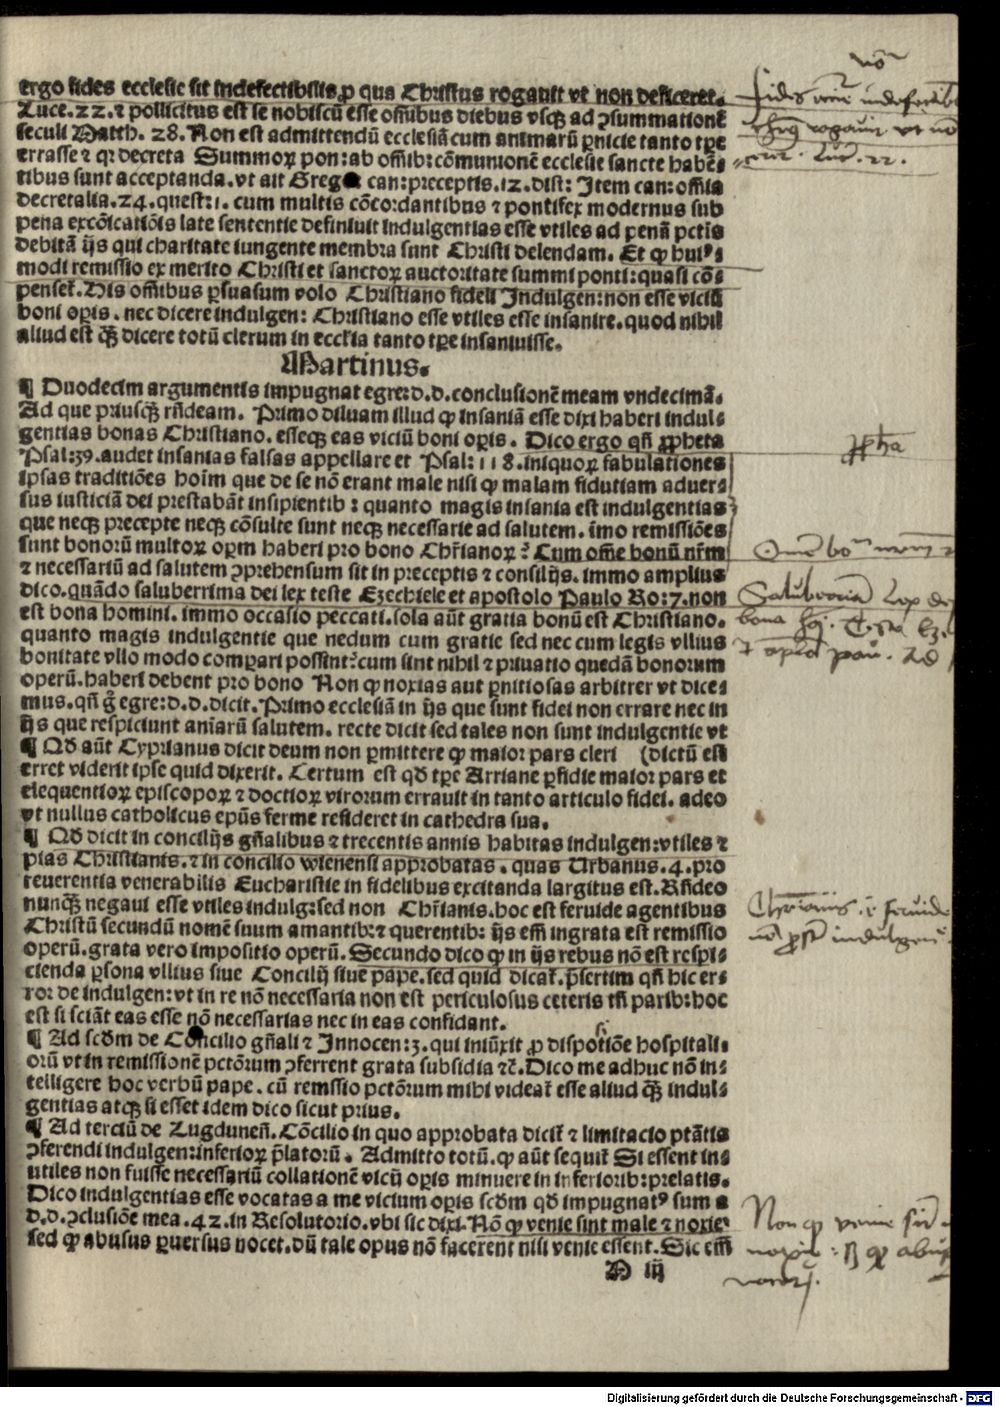 ergo fides ecclesie sit indefectibilis ꝓ qua Christus rogauit vt non deficeret.
Luce.22.⁊ pollicitus est se nobiscū esse oībus diebus vsq̄ ad ꝯsummationē
seculi Matth. 28. Non est admittendū ecclesiā cum animarū ꝑnicie tanto tꝑe
errasse ⁊ qꝛ decreta Summoꝝ pon: ab oībus: cōmunionē ecclesie sancte habē⸗
tibus sunt acceptanda. vt ait Grego can: preceptis.12.dist: Item can: oīia
decretalia.24.quest:1. cum multis cōcoꝛdantibus ⁊ pontifex modernus sub
pena excōicatiōis late sententie definiuit indulgentias esse vtiles ad penā pctis
debitā ijs qui charitate iungente membra sunt Christi delendam. Et ꝙ huiꝰ⸗
modi remissio ex merito Christi et sanctoꝝ auctoritate summi ponti: quasi cō⸗
penset̄. His oībus ꝑsuasum volo Christiano fideli Indulgen: non esse viciū
boni oꝑis. nec dicere indulgen: Christiano esse vtiles esse insanire. quod nihil
aliud est q̄ꝫ dicere totū clerum in eccɫia tanto tꝑe insaniuisse.
Martinus.
¶ Duodecim argumentis impugnat egre: d. d. conclusionē meam vndecimā.
Ad que priusq̄ꝫ rn̄deam. Primo diluam illud ꝙ insaniā esse dixi haberi indul⸗
gentias bonas Christiano. esseqꝫ eas viciū boni oꝑis. Dico ergo qn̄ ꝓpheta
Psal:39.audet insanias falsas appellare et Psal:118.iniquoꝝ fabulationes
ipsas traditiōes hoīm que de se nō erant male nisi ꝙ malam fidutiam aduer⸗
sus iusticiā dei prestabāt insipientib: quanto magis insania est indulgentias
que neqꝫ precepte neqꝫ cōsulte sunt neqꝫ necessarie ad salutem. īmo remissiōes
sunt bonorū multoꝝ oꝑm haberi pro bono Chr̄ianoꝝ? Cum oīe bonū nr̄m
⁊ necessariū ad salutem ꝯprehensum sit in preceptis ⁊ consilijs. immo amplius
dico. quādo saluberrima dei lex teste Ezechiele et apostolo Paulo Ro:7.non
est bona homini. immo occasio peccati. sola aūt gratia bonū est Christiano.
quanto magis indulgentie que nedum cum gratie sed nec cum legis vllius
bonitate vllo modo comꝑari possint? cum sint nihil ⁊ priuatio quedā bonorum
operū. haberi debent pro bono Non ꝙ noxias aut ꝑnitiosas arbitrer vt dice⸗
mus. qn̄ g̊ egre: d. d. dicit. Primo ecclesiā in ijs que sunt fidei non errare nec in
ijs que respiciunt aīarū salutem. recte dicit sed tales non sunt indulgentie vt
¶ Qd̄ aūt Cyprianus dicit deum non ꝑmittere ꝙ maior pars cleri (dictū est
erret viderit ipse quid dixerit. Certum est qd̄ tꝑe Arriane ꝑfidie maior pars et
elequentioꝝ episcopoꝝ ⁊ doctioꝝ virorum errauit in tanto articulo fidei. adeo
vt nullus catholicus ep̄us ferme resideret in cathedra sua.
¶ Qd̄ dicit in concilijs gn̄alibus ⁊ trecentis annis habitas indulgen: vtiles ⁊
pias Christianis. ⁊ in concilio wienensi approbatas. quas Urbanus.4.pro
reuerentia venerabilis Eucharistie in fidelibus excitanda largitus est. Rn̄deo
nunq̄ꝫ negaui esse vtiles indulg: sed non Chr̄ianis. hoc est feruide agentibus
Christū secundū nomē suum amantib: ⁊ querentib: ijs em̄ ingrata est remissio
operū. grata vero impositio operū. Secundo dico ꝙ in ijs rebus nō est respi⸗
cienda ꝑsona vllius siue Concilij siue pape. sed quid dicat̄. p̄sertim qn̄ hic er⸗
roꝛ de indulgen: vt in re nō necessaria non est periculosus ceteris tn̄ parib: hoc
est si sciāt eas esse nō necessarias nec in eas confidant.
¶ Ad scd̄m de Concilio gn̄ali ⁊ Innocen:3.qui iniūxit ꝓ dispotiōe hospitali⸗
orū vt in remissionē pctōrum ꝯferrent grata subsidia ⁊c̄. Dico me adhuc nō in⸗
telligere hoc verbū pape. cū remssio pctōrum mihi videat̄ esse aliud q̄ꝫ indul⸗
gentias atqꝫ si esset idem dico sicut prius.
¶ Ad terciū de Lugdunen̄. Cōcilio in quo approbata dicit̄ ⁊ limitacio ptātis
ꝯferendi indulgen: inferioꝝ p̄latorū. Admitto totū. ꝙ aūt sequit̄ Si essent in⸗
utiles non fuisse necessariū collationē vicij oꝑis minuere in inferiorib: prelatis.
Dico indulgentias esse vocatas a me vicium oꝑis scd̄m qd̄ impugnatꝰ sum a
d. d. ꝯclusiōe mea.42.in Resolutorio. vbi sic dixi. Nō ꝙ venie sint male ⁊ noxie
sed ꝙ abusus ꝑuersus nocet. dū tale opus nō facerent nisi venie essent. Sic em̄
D iij
ꝓpha
Digitalisierung gefördert durch die Deutsche Forschungsgemeinschaft - DFG